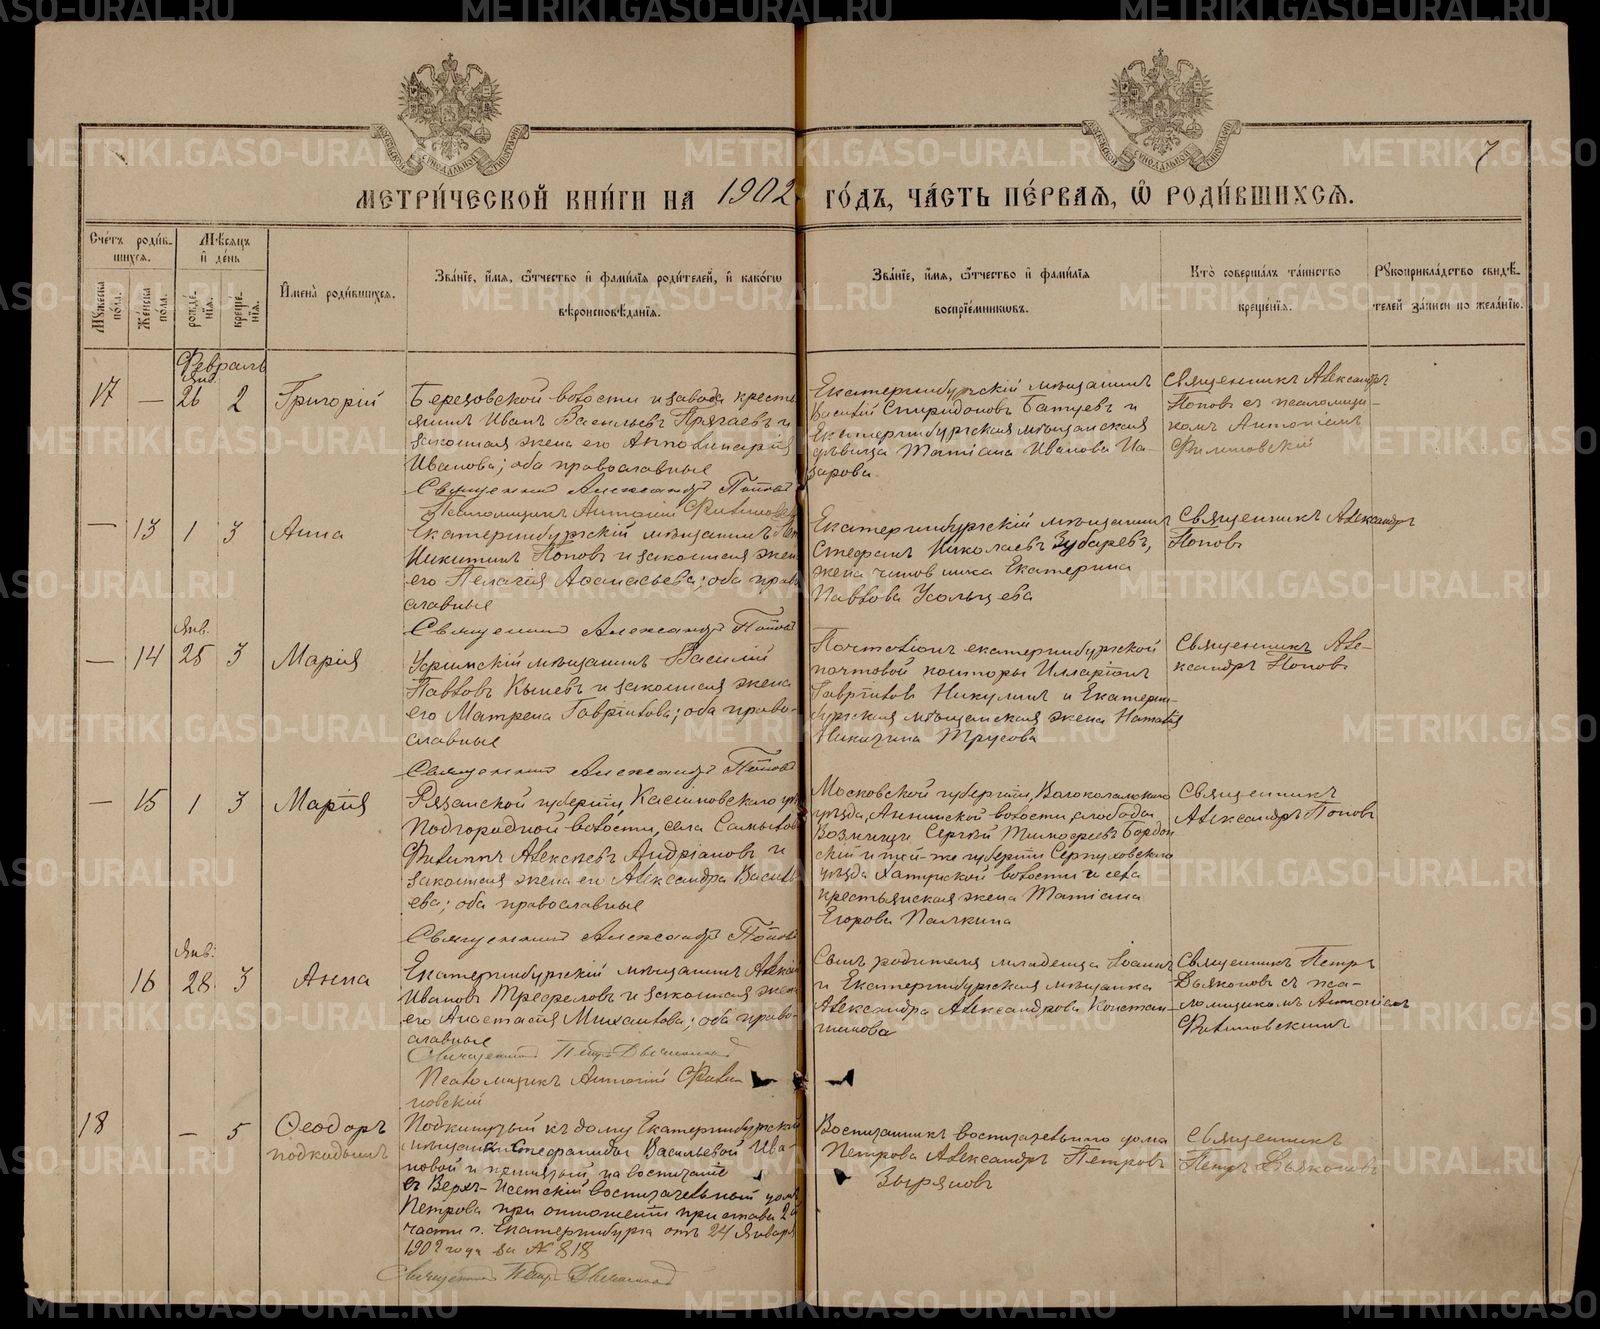 7
МЕТРИ́ЧЕСКОЙ КНИ́ГИ НА 1902 ГО́ДЪ, ЧА́СТЬ ПЕ́РВАѦ, Ѽ РОДИ́ВШИХСѦ.
Сче́тъ роди́в-
шихсѧ.
Мѣ́сяцъ
и҆ де́нь
Му́жеска
по́ла.
Же́нска
по́ла.
рожде́-
нїѧ.
креще́-
нїѧ.
И҆мена̀ роди́вшихсѧ.
Зва́нїе, и҆́мѧ, ѻ҆́тчество и҆ фами́лїѧ роди́телей, и҆ како́гѡ
вѣроисповѣ́данїѧ.
Зва́нїе, и҆́мѧ, ѻ҆́тчество и҆ фами́лїѧ
воспрїе́мникѡвъ.
Кто̀ соверша́лъ та́инство
креще́нїѧ.
Рꙋкоприкла́дство свидѣ́-
телей за́писи по жела́нїю.
Февраль
17 — Янв. 26 2 Григорій
Березовской волости и завода кресть
янинъ Иванъ Васильевъ Пряхаевъ и
законная жена его Апполинарія
Иванова; оба православные
Священникъ Александръ Поповъ
Псаломщикъ Антоній Филиповскій
Екатеринбургскій мѣщанинъ
Василій Спиридоновъ Батуевъ и
Екатеринбургская мѣщанская
дѣвица Татіана Иванова На-
зарова.
Священникъ Александръ
Поповъ съ псаломщи-
комъ Антоніемъ
Филиповскій
— 13 1 3 Анна
Екатеринбургскій мѣщанинъ
Никитинъ Поповъ и законная жена
его Пелагія Афанасьева; оба право
славные
Священникъ Александръ Поповъ
Екатеринбургскій мѣщанинъ
Стефанъ Николаевъ Зубаревъ,
жена чиновника Екатерина
Павлова Усольцева
Священникъ Александръ
Поповъ
— 14 Янв. 25 3 Марія
Уфимскій мѣщанинъ Василій
Павловъ Кышевъ и законная жена
его Матрена Гавріилова; оба право-
славные
Священникъ Александръ Поповъ
Почталіонъ екатеринбургской
почтовой конторы Илларіонъ
Гавріиловъ Никулинъ и Екатерин-
бургская мѣщанская жена Наталія
Никитина Трусова
Священникъ Але-
ксандръ Поповъ
— 15 1 3 Марія
Рязанской губерніи, Касимовского уѣз
Подгородной волости, села
Филиппъ Алексѣевъ Андріановъ и
законная жена его Александра Василь
ева; оба православные
Священникъ Александръ Поповъ
Московской губерніи, Волоколамскаго
уѣзда, Аннинской волости, слободы
Возмищи Сергѣй Тимофеевъ Бордон
скій и той-же губерніи Серпуховскаго
уѣзда Хатунской волости и села
крестьянская жена Татіана
Егорова Палкина
Священникъ
Александръ Поповъ
16 Янв. 28 3 Анна
Екатеринбургскій мѣщанинъ Алексій
Ивановъ Трефеловъ и законная жена
его Анастасія Михаилова; оба право-
славные
Священникъ Петръ Дьяконовъ
Псаломщикъ Антоній Фили-
повскій
Сынъ родителя младенца Іоаннъ
и Екатеринбургская мѣщанка
Александра Александрова Констан-
тинова
Священникъ Петръ
Дьяконовъ съ пса-
ломщикомъ Антоніемъ
Филиповскимъ
18 — 5 Ѳеодоръ
подкидышъ
Подкинутый къ дому Екатеринбургской
мѣщанки Стефаниды Васильевой Ива-
новой и принятый на воспитаніе
въ Верхъ-Исетскій воспитательный домъ
Петрова при отношеніи пристава 2й
части г. Екатеринбурга отъ 24 Января
1902 года за № 818
Священникъ Петръ Дьяконовъ
Воспитанникъ воспитательнаго дома
Петрова Александръ Петровъ
Зыряновъ
Священникъ
Петръ Дьяконовъ
METRIKI.GASO-URAL.RU